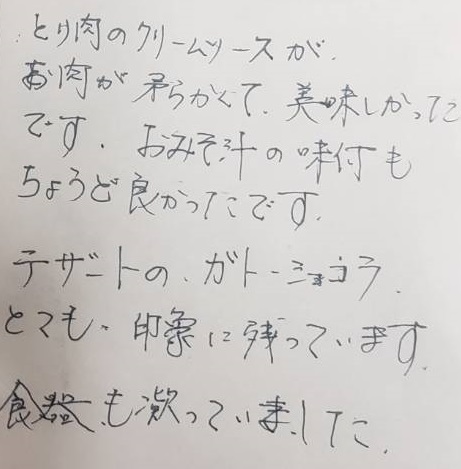 とり肉のクリームソースが、
お肉が柔らかくて、美味しかった
です。おみそ汁の味付も
ちょうど良かったです。
デザートの、ガトーショコラ、
とても、印象に残っています。
食器も凝っていました。